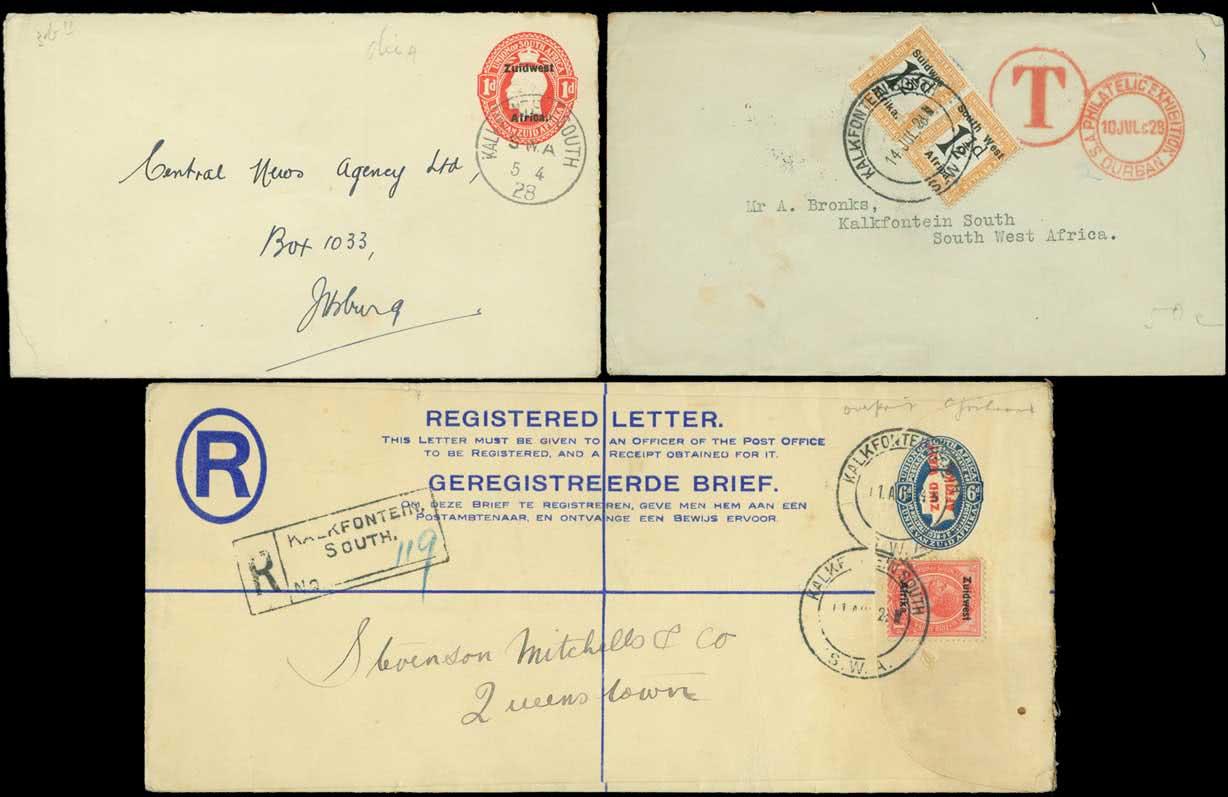 UNION OF SOUTH AFRICA
1d 1d
Zuidwest
Afrika.
UNIE VAN ZUID AFRIKA
KALKFONTEIN SOUTH
S.W.A
5 4
28
Central News Agency Ltd,
Box 1033,
J'burg
Suidwes
Afrika.
South West
Africa.
1½D
KALKFONTEIN
14 JUL 28
T
S.A. PHILATELIC EXHIBITION
10 JUL 28
DURBAN
Mr A. Bronks,
Kalkfontein South
South West Africa.
R
REGISTERED LETTER.
THIS LETTER MUST BE GIVEN TO AN OFFICER OF THE POST OFFICE
TO BE REGISTERED, AND A RECEIPT OBTAINED FOR IT.
GEREGISTREERDE BRIEF.
OM DEZE BRIEF TE REGISTREREN, GEVE MEN HEM AAN EEN
POSTAMBTENAAR, EN ONTVANGE EEN BEWIJS ERVOOR.
R
KALKFONTEIN,
SOUTH.
No 119
6d 6d
UNIE VAN ZUID AFRIKA
KALKFONTEIN
KALKFONTEIN SOUTH
S.W.A.
Zuidwest
Afrika
Stevenson Mitchells & Co
Queenstown